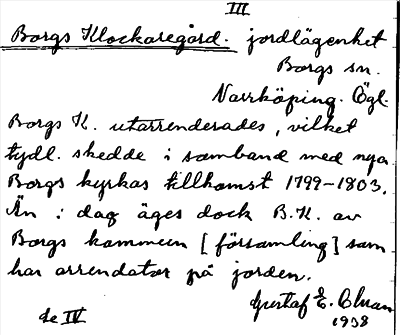 III
Borgs Klockaregård. jordlägenhet
Borgs sn.
Norrköping. Ögl.
Borgs K. utarrenderades, vilket
tydl. skedde i samband med nya
Borgs kyrkas tillkomst 1799-1803.
Än i dag äges dock B.K. av
Borgs kommun [församling] som
har arrendator på jorden.
Gustaf E.
1938
se IV